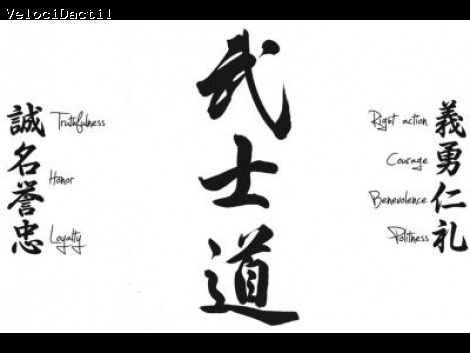 VelociDactil
武士道
誠 Truthfulness
名誉 Honor
忠 Loyalty
Right action 義
Courage 勇
Benevolence 仁
Politness 礼